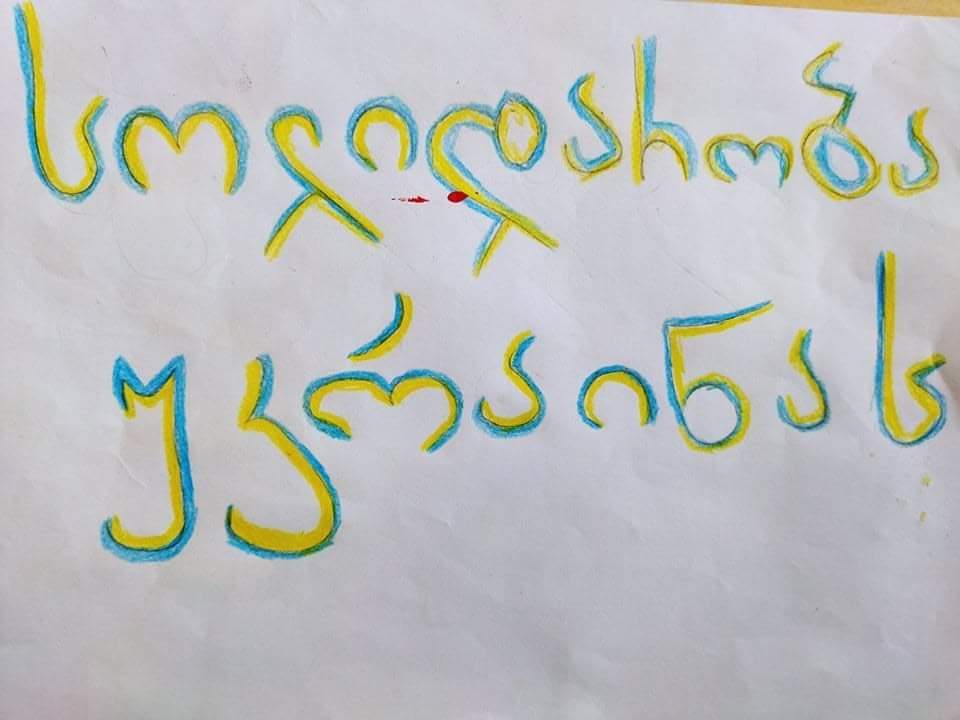 სოლიდარობა
უკრაინას